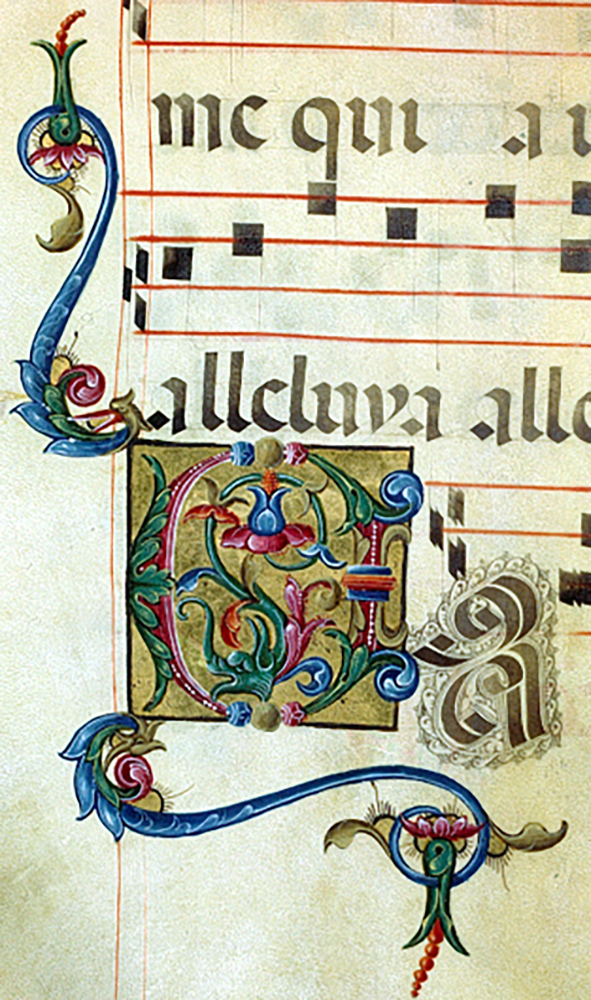 me qui a
alleluya alle
E A